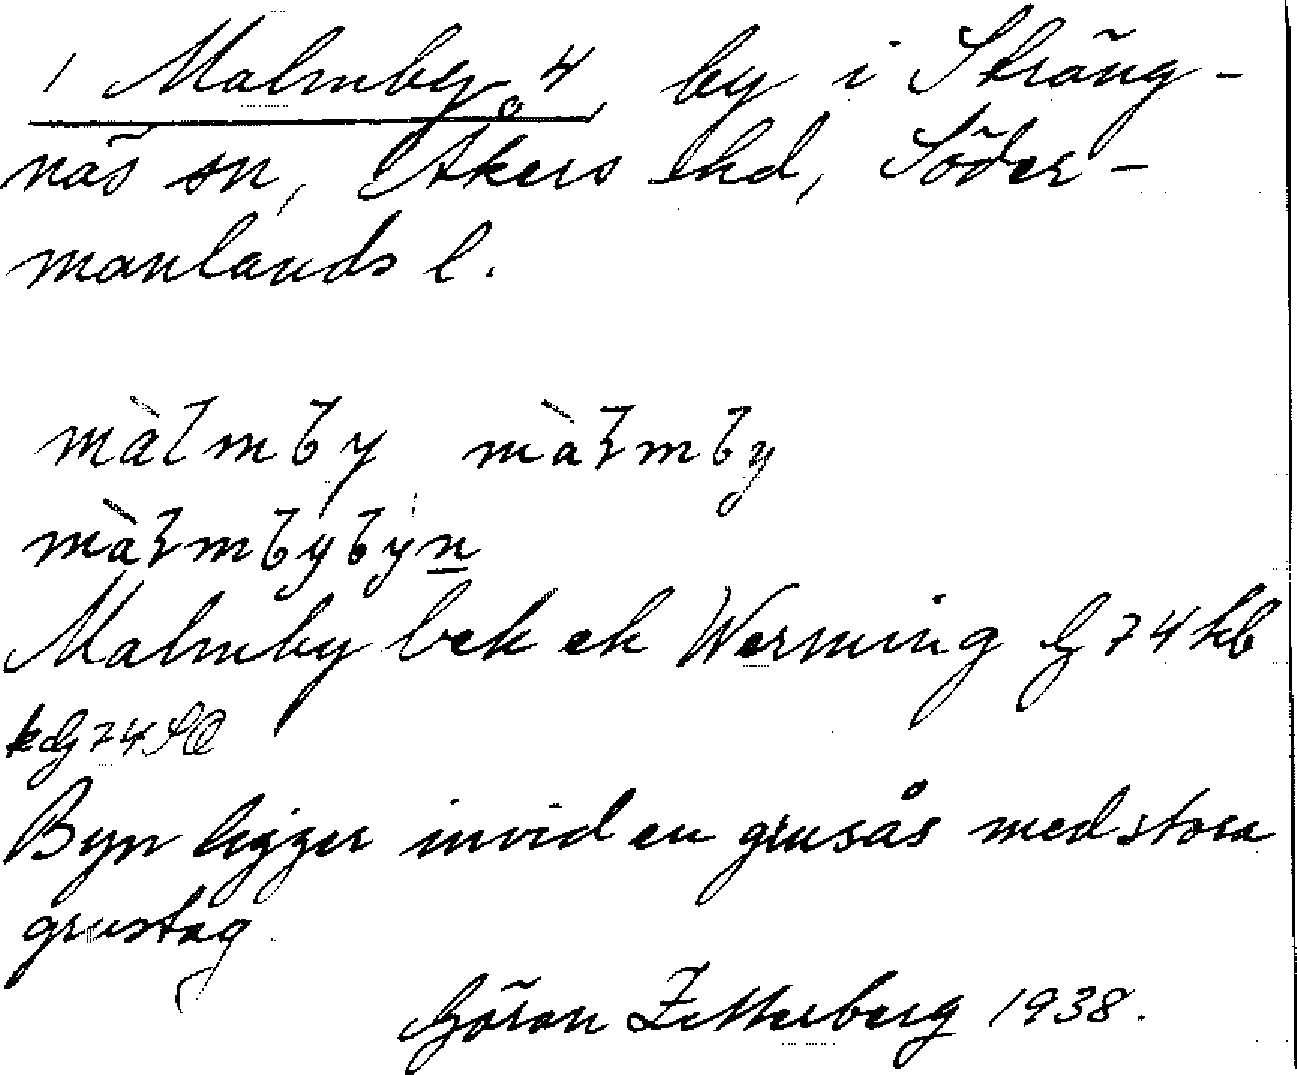 1 Malmby 4, by i Sträng-
näs sn, Åkers hd, Söder-
manlands l.
màlmby màɫmby
màɫmbybyn
Malmby bek ek Werming G 74 kb
k dG 74 SO
Byn ligger invid en grusås med stora
grustag.
Göran Zetterberg 1938.